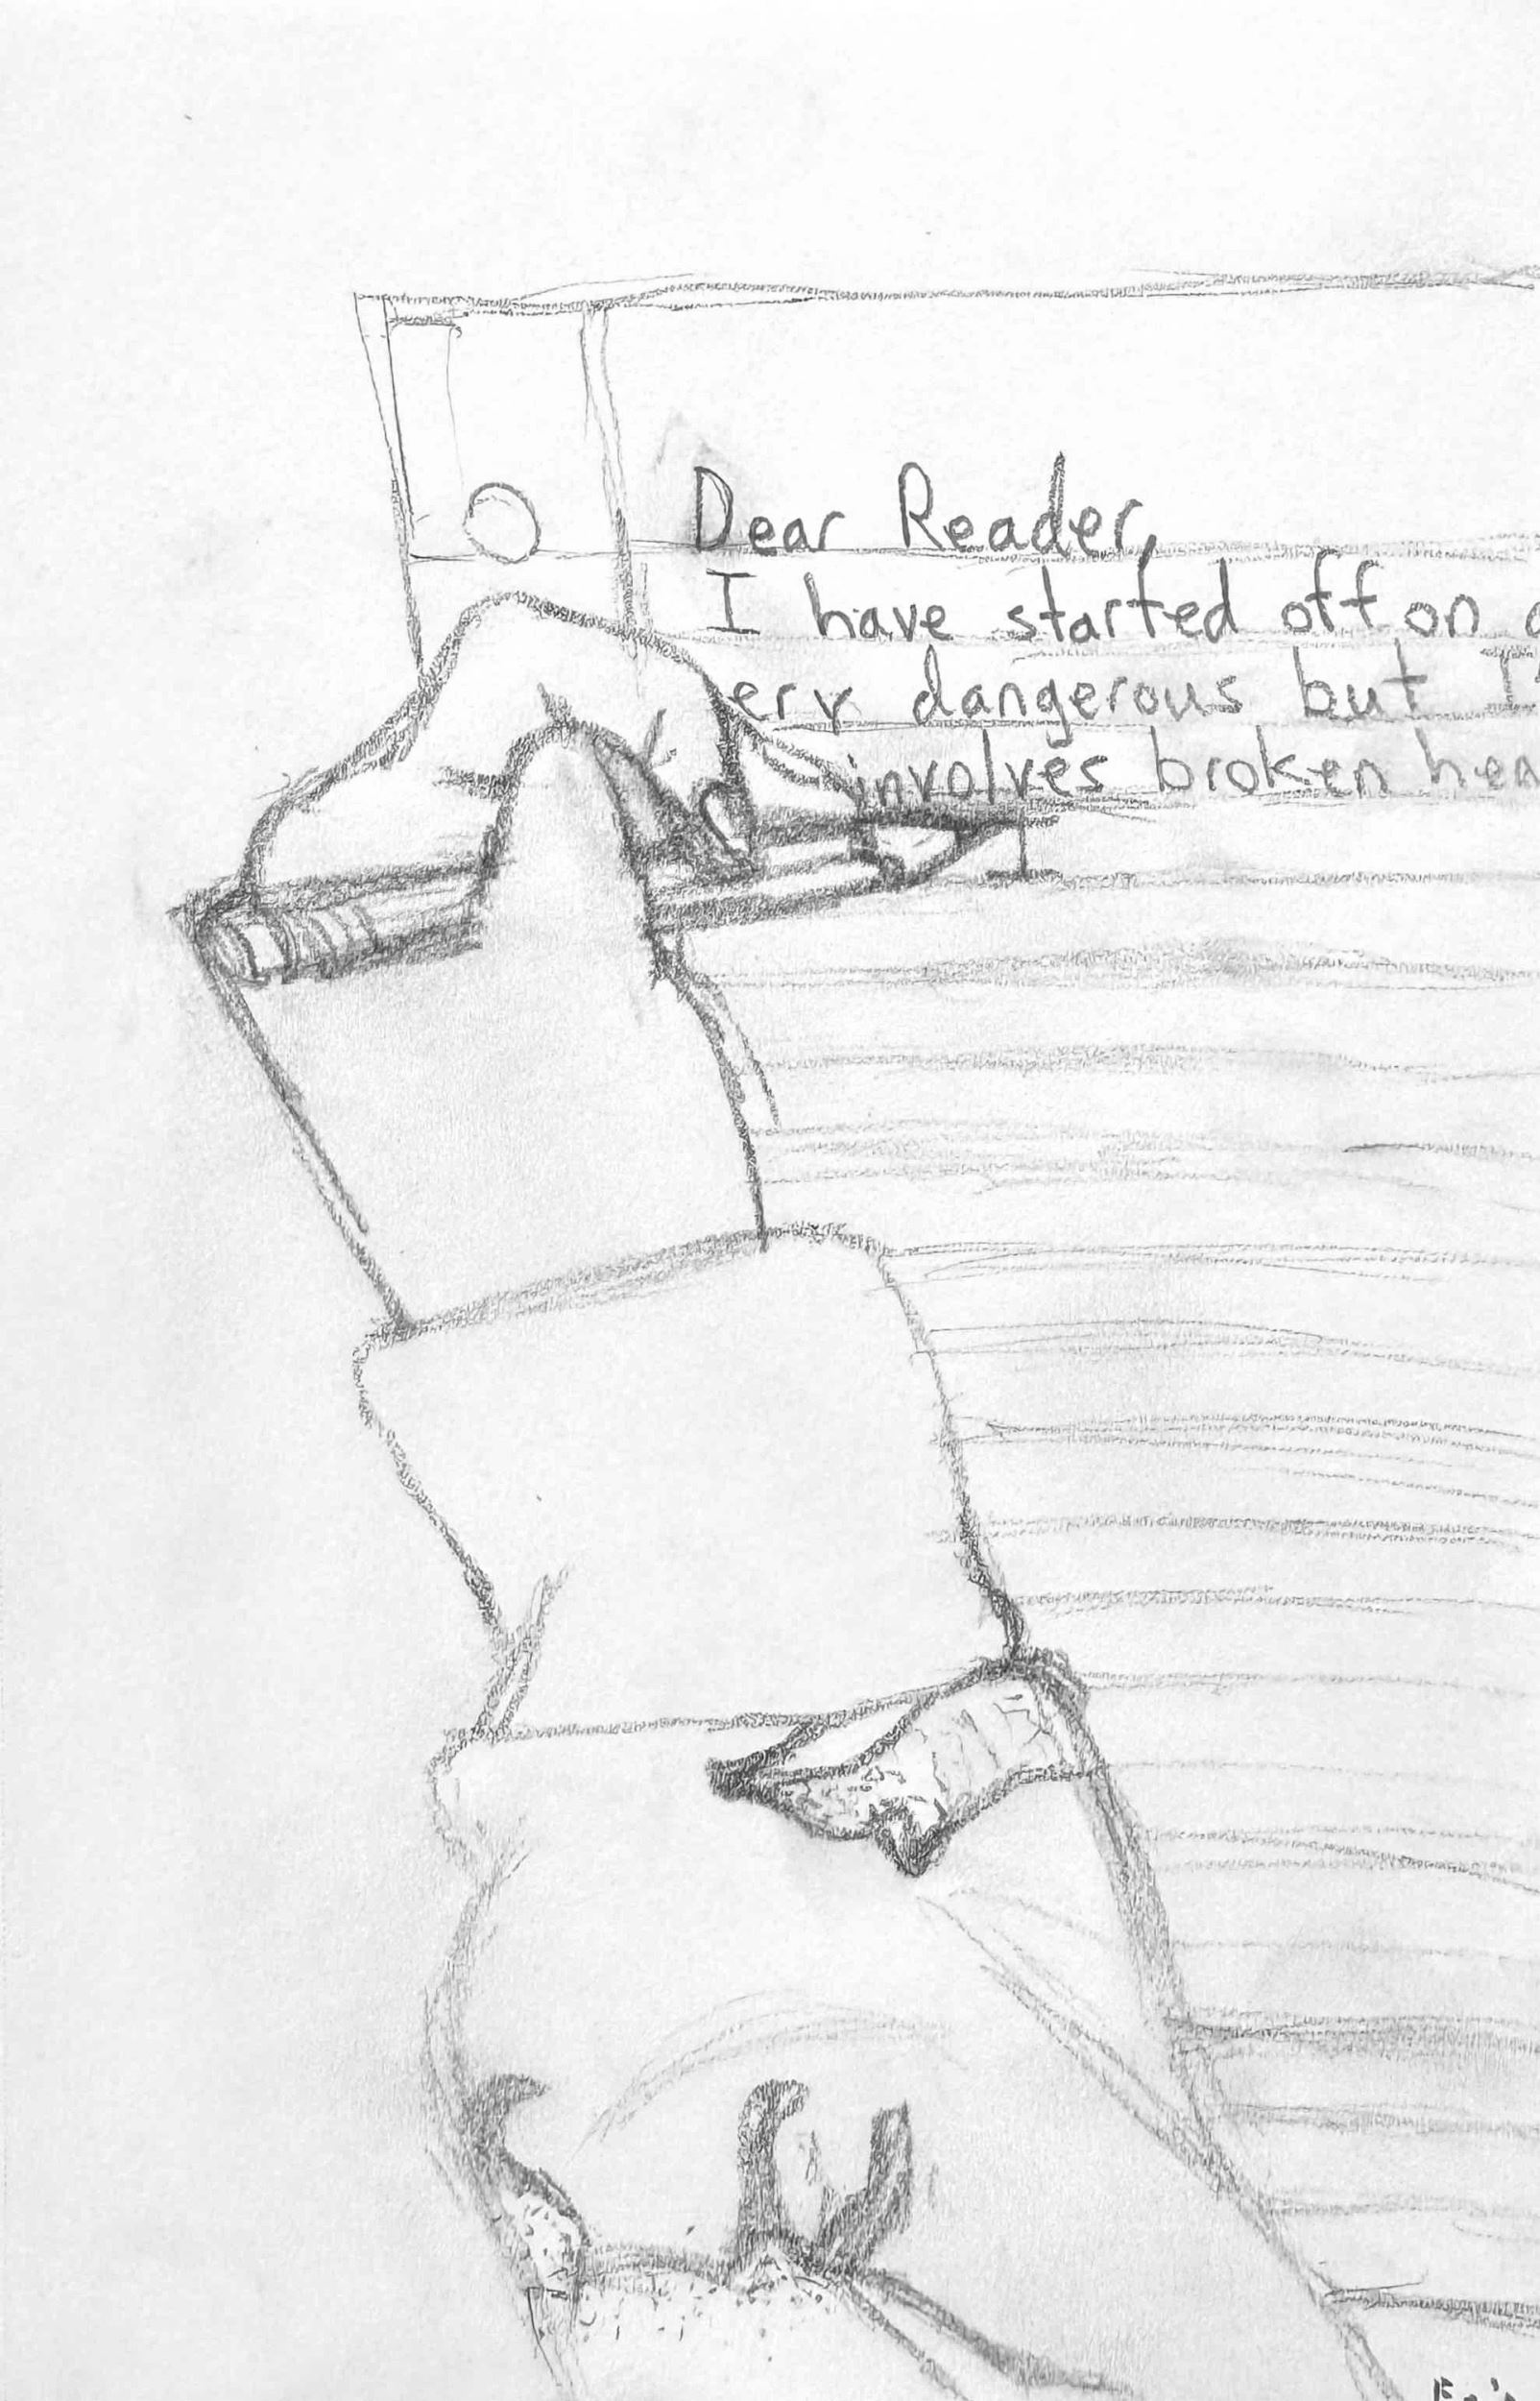 Dear Reader,
I have started off on a
ery dangerous but I
involves broken hea
I